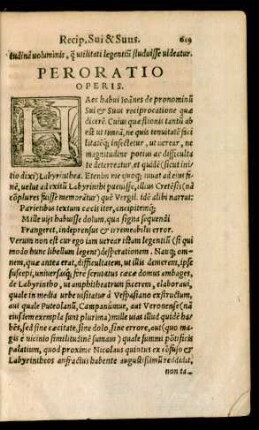 Recip. Sui & Suus. 619
tudinē uoluminis, q̃ utilitati legentiũ studuisse uideatur.
PERORATIO
OPERIS.
HAec habui Ioānes de pronominũ
Sui & Suus reciprocatione quæ
dicerē. Cuius quæstionis tantũ ab
est ut timeā, ne quis tenuitatē faci
litatēq; insectetur, ut uerear, ne
magnitudine potius ac difficulta
te deterreatur, et quidē (sicut ini
tio dixi) Labyrinthea. Etenim me quoq; iuuat ad eius fi
nē, uelut ad exitũ Labyrinthi peruenisse, illiusq; Cretēsis (nā
cōplures fuisse memorātur) quē Vergil. idē alibi narrat:
Parietibus textum cæcis iter, ancipitemq;
Mille uijs habuisse dolum, qua signa sequendi
Frangeret, indeprensus & irremeabilis error.
Verum non est cur ego iam uerear istam legentiũ (si qui
modo hunc libellum legent) desperationem. Nanq; om
nem, quæ antea erat, difficultatem, ut illis demerem, ipse
suscepi, uniuersasq; fere semitas cæcæ domus ambages,
de Labyrintho, ut amphitheatrum facerem, elaboraui,
quale in media urbe uisitatur à Vespasiano exstructum,
aut quale Puteolanũ, Campanũmue, aut Veronense (nā
eiusdem exempla sunt plurima) mille uias illud quidē ha
bēs, sed sine cæcitate, sine dolo, sine errore, aut (quo ma
gis è uicinio similitudinē samam) quale summi pōtificis
palatium, quod proxime Nicolaus quintus ex cōfuso &
Labyrintheos anfractus habente augustissimũ reddidit,
non ta-